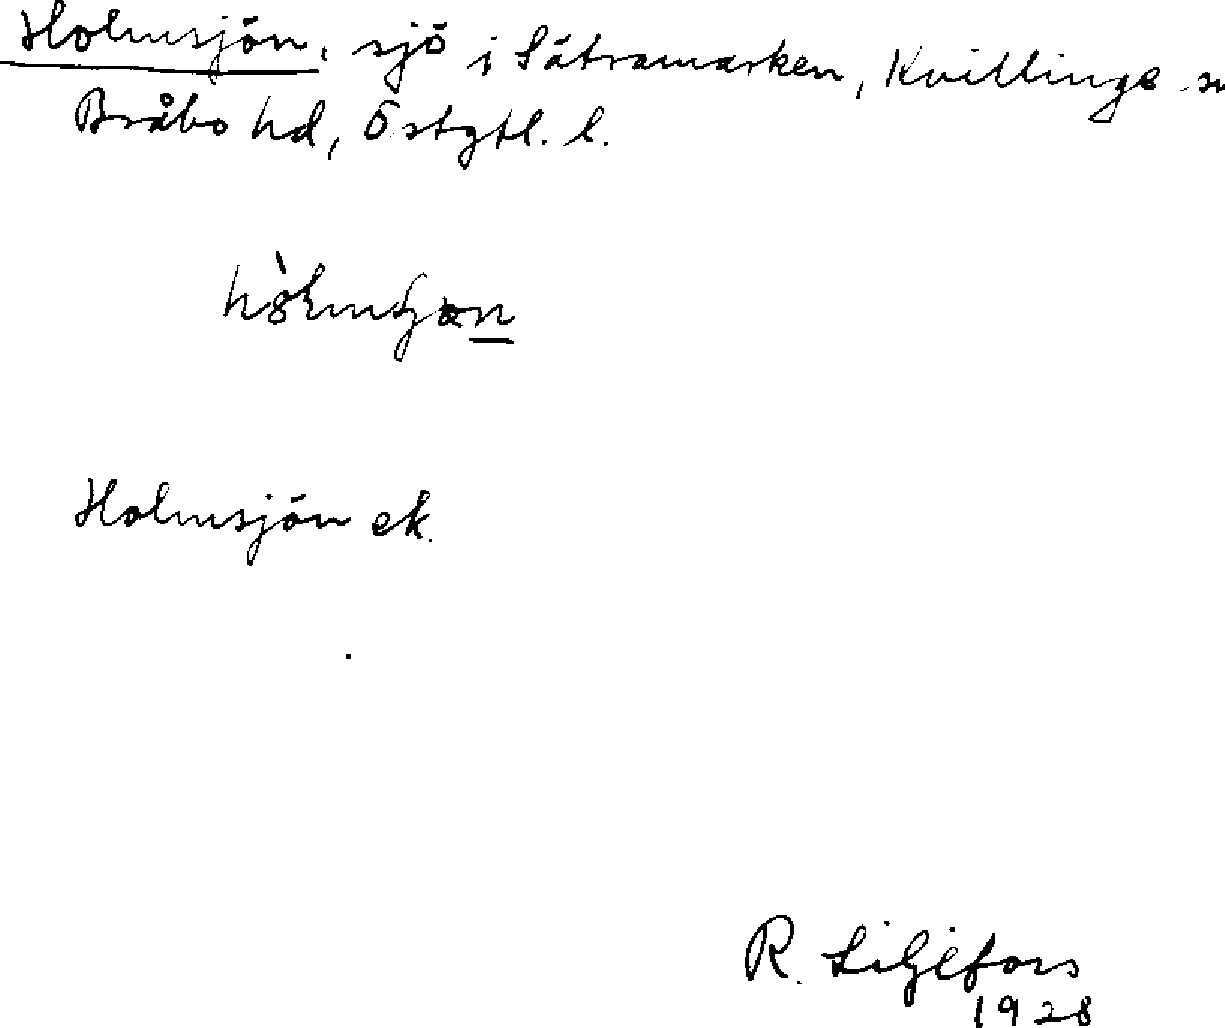 Holmsjön, sjö i Sätramarken, Kvillinge sn
Bråbo hd, Östgtl. l.
Holmsjön ek.
R. Liljefors
1928